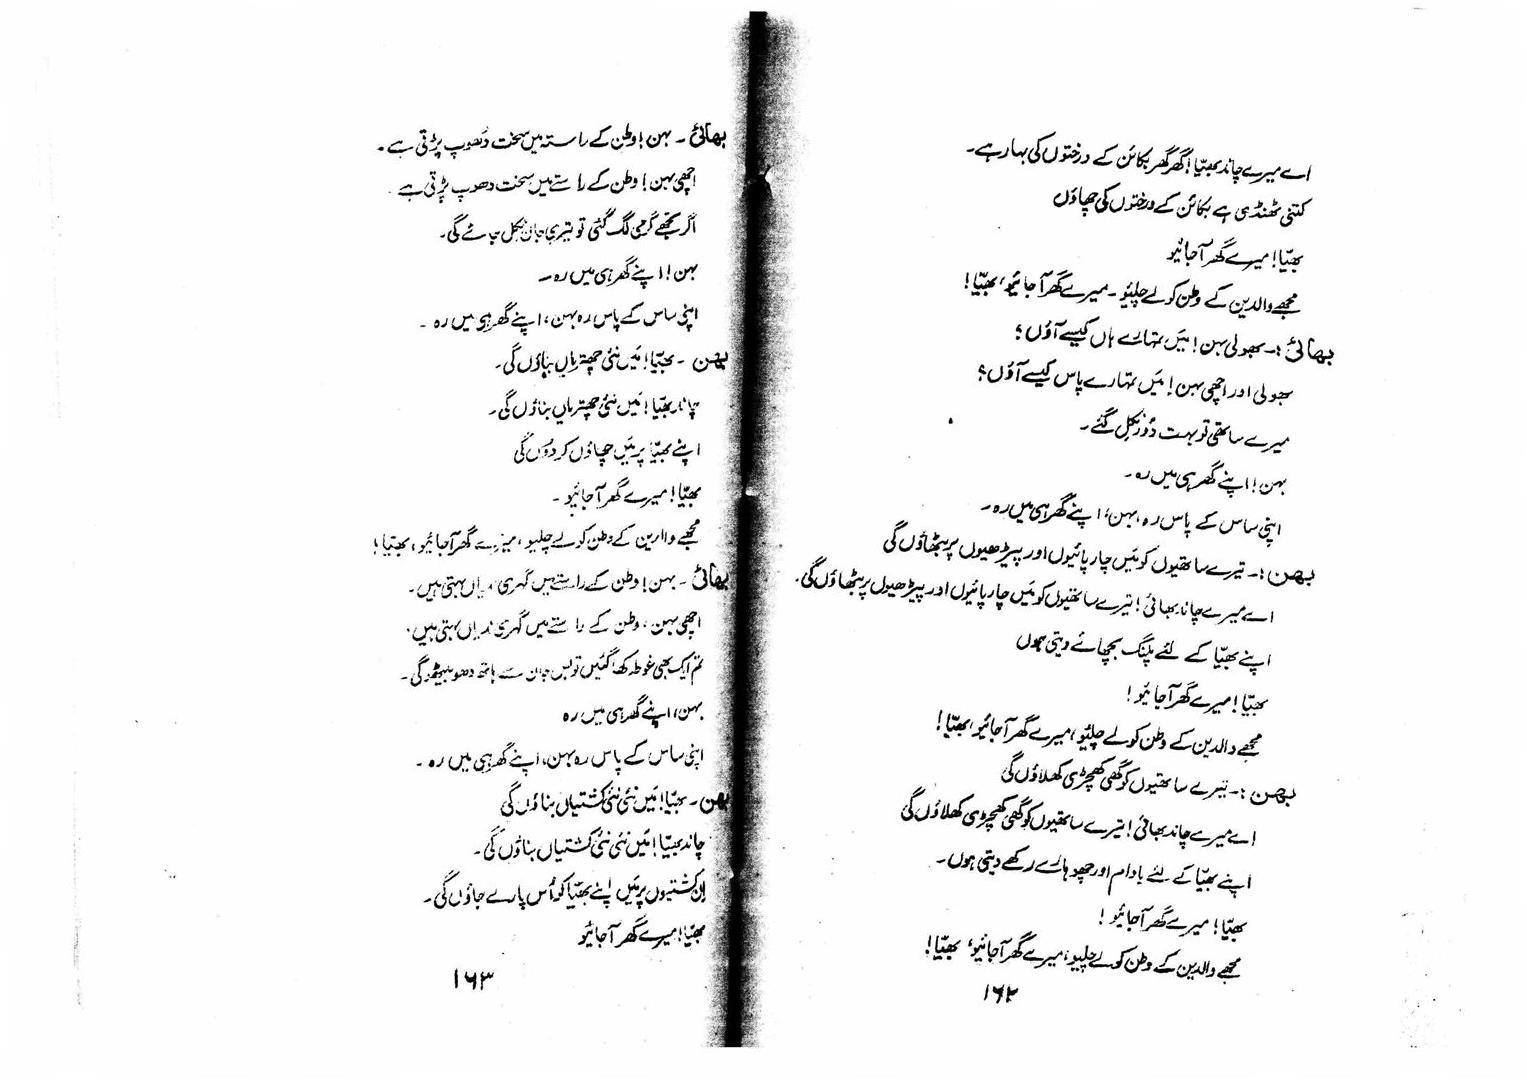 اے میرے چاند بھیّا! گھر گھر بکائن کے درختوں کی بہار ہے۔
کتنی ٹھنڈی ہے بکائن کے درختوں کی چھاؤں
بھیّا! میرے گھر آ جائیو
مجھے والدین کے وطن کو لے چلیو۔ میرے گھر آ جائیو، بھیّا!
بھائی:۔ بھولی بہن! میَں تمہارے ہاں کیسے آؤں؟
بھولی اور اچھی بہن! میَں تمہارے پاس کیسے آؤں؟
میرے ساتھی تو بہت دُور نکل گئے۔
بہن! اپنے گھر ہی میں رہ۔
اپنی ساس کے پاس رہ، بہن، اپنے گھر ہی میں رہ۔
بہن:۔ تیرے ساتھیوں کو میَں چارپائیوں اور پیڑھیوں پر بٹھاؤں گی
اے میرے چاند بھائی! تیرے ساتھیوں کو میَں چارپائیوں اور پیڑھیوں پر بٹھاؤں گی۔
اپنے بھیّا کے لئے پلنگ بچھائے دیتی ہوں
بھیّا! میرے گھر آ جائیو!
مجھے والدین کے وطن کو لے چلیو، میرے گھر آ جائیو، بھیّا!
بہن:۔ تیرے ساتھیوں کو گھی کھچڑی کھلاؤں گی
اے میرے چاند بھائی! تیرے ساتھیوں کو گھی کھچڑی کھلاؤں گی
اپنے بھیّا کے لئے بادام اور چھوہارے رکھے دیتی ہوں۔
بھیّا! میرے گھر آ جائیو!
مجھے والدین کے وطن کو لے چلیو، میرے گھر آ جائیو، بھیّا!
۱۶۲
بھائی۔ بہن! وطن کے راستہ میں سخت دھوپ پڑتی ہے۔
اچھی بہن! وطن کے راستے میں سخت دھوپ پڑتی ہے۔
اگر تجھے گرمی لگ گئی تو تیری جان نکل جائے گی۔
بہن! اپنے گھر ہی میں رہ۔
اپنی ساس کے پاس رہ بہن، اپنے گھر ہی میں رہ۔
بہن۔ بھیّا! میَں نئی چھتریاں بناؤں گی۔
چاند بھیّا! میَں نئی چھتریاں بناؤں گی۔
اپنے بھیّا پر میَں چھاؤں کر دوں گی
بھیّا! میرے گھر آ جائیو۔
مجھے والدین کے وطن کو لے چلیو، میرے گھر آ جائیو، بھیّا!
بھائی۔ بہن! وطن کے راستے میں گہری ندیاں بہتی ہیں۔
اچھی بہن، وطن کے راستے میں گہری ندیاں بہتی ہیں۔
تم ایک بھی غوطہ کھا گئیں تو بس جان سے ہاتھ دھو بیٹھو گی۔
بہن، اپنے گھر ہی میں رہ
اپنی ساس کے پاس رہ بہن، اپنے گھر ہی میں رہ۔
بہن۔ بھیّا! میَں نئی نئی کشتیاں بناؤں گی
چاند بھیّا! میَں نئی نئی کشتیاں بناؤں گی۔
اِن کشتیوں پر میَں اپنے بھیّا کو اُس پار لے جاؤں گی۔
بھیّا! میرے گھر آ جائیو
۱۶۳